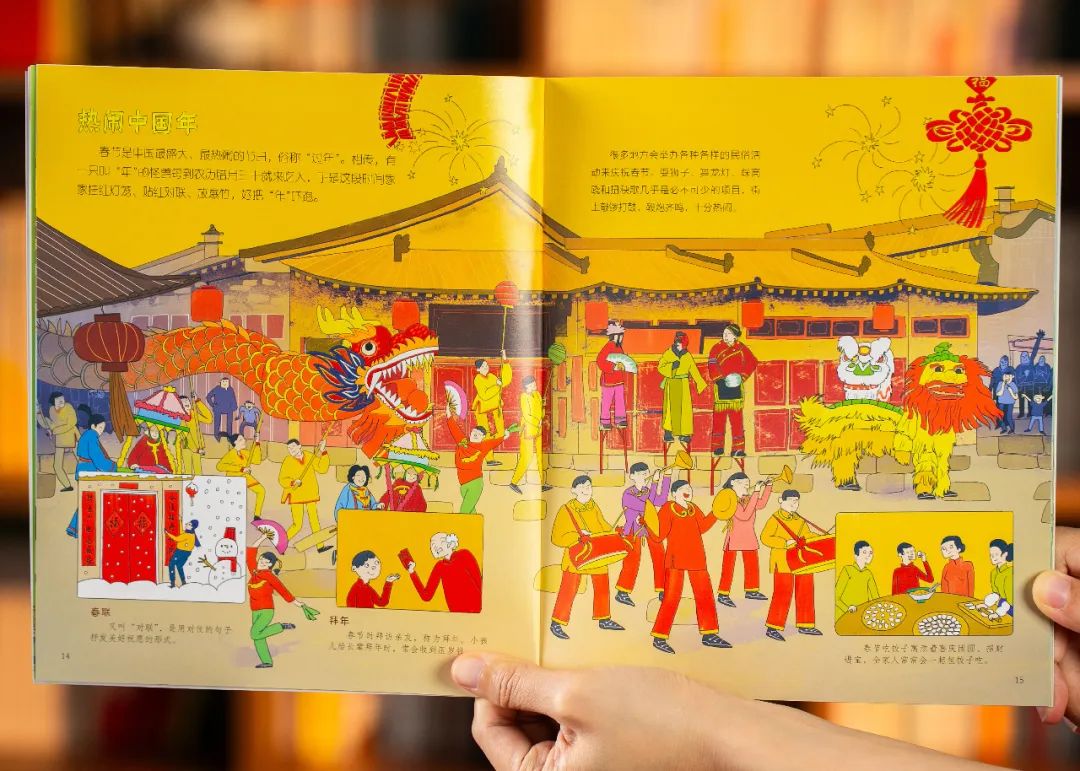 热闹中国年
春节是中国最盛大、最热闹的节日，俗称“过年”。相传，有
一只叫“年”的怪兽每到农历腊月三十就来吃人，于是这段时间家
家挂红灯笼、贴红对联、放爆竹，好把“年”吓跑。
很多地方会举办各种各样的民俗活
动来庆祝春节，耍狮子、舞龙灯、踩高
跷和扭秧歌几乎是必不可少的项目，街
上敲锣打鼓、鞭炮齐鸣，十分热闹。
福
春联
又叫“对联”，是用对仗的句子
抒发美好祝愿的形式。
拜年
春节时拜访亲友，称为拜年。小孩
儿给长辈拜年时，常会收到压岁
春节吃饺子寓意着喜庆团圆、招财
进宝，全家人常常会一起包饺子吃。
14
15